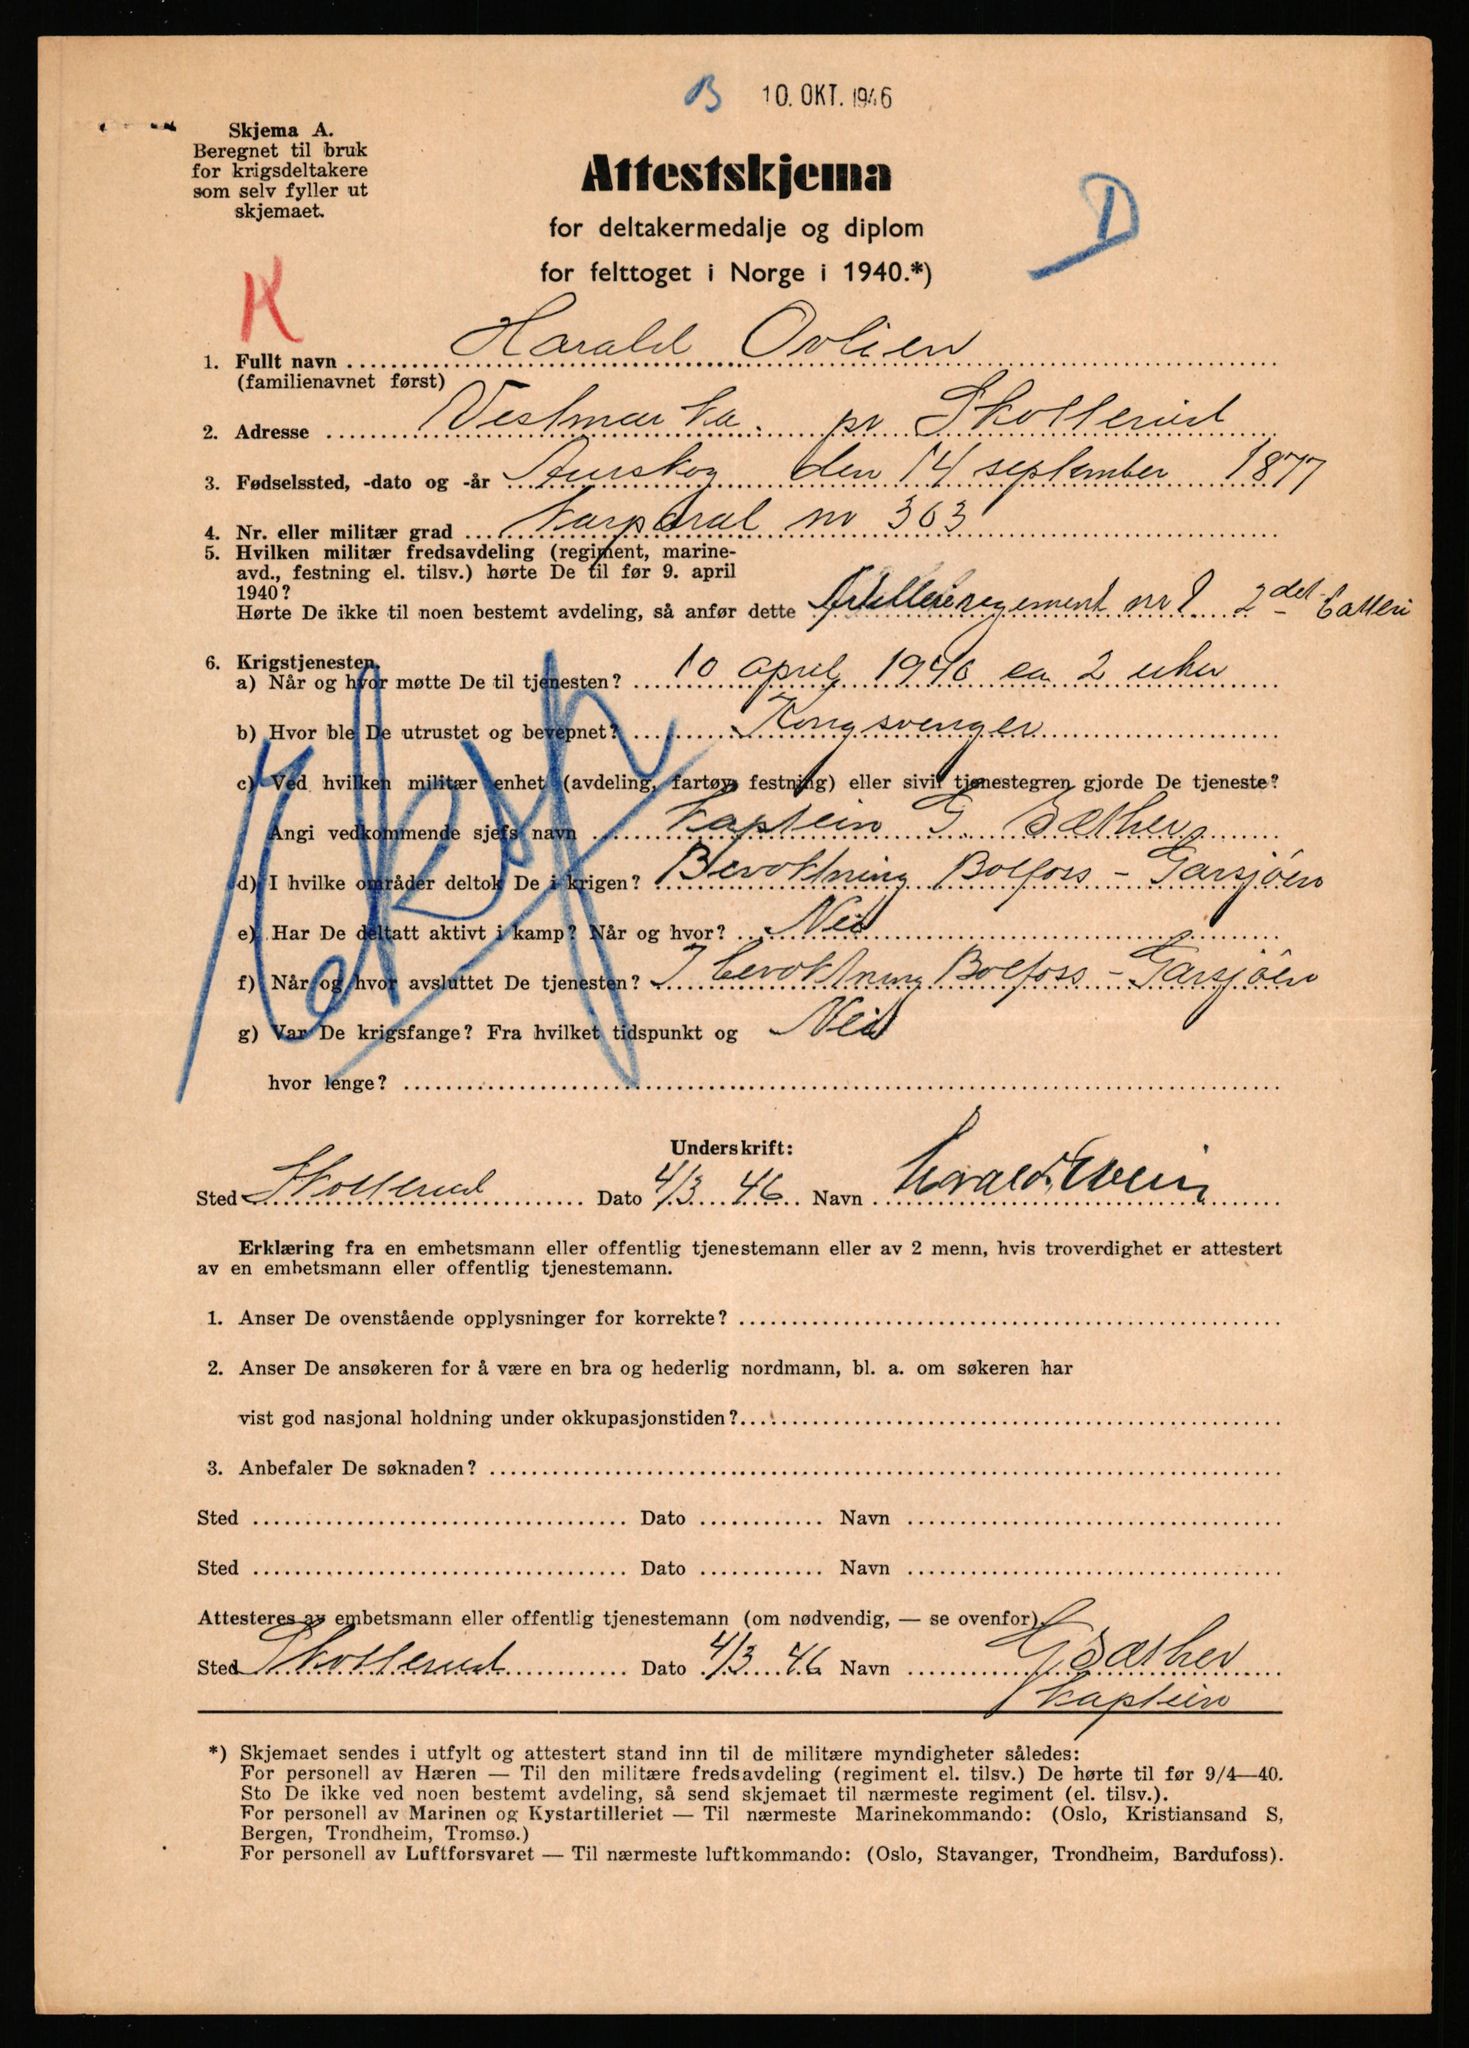 B 10. OKT. 1946
Skjema A.
Beregnet til bruk
for krigsdeltakere
som selv fyller ut
skjemaet.
Attestskjema
for deltakermedalje og diplom
for felttoget i Norge i 1940.*)
D
K
1. Fullt navn Harald Ovlien
(familienavnet først)
2. Adresse Vestmarka pr Skotterud
3. Fødselssted, -dato og -år Aurskog den 14 september 1877
4. Nr. eller militær grad Korporal nr 363
5. Hvilken militær fredsavdeling (regiment, marine-
avd., festning el. tilsv.) hørte De til før 9. april
1940?
Hørte De ikke til noen bestemt avdeling, så anfør dette Artilleriregement nr 1 2det batteri
6. Krigstjenesten.
a) Når og hvor møtte De til tjenesten? 10 april 1940 ca 2 uker
b) Hvor ble De utrustet og bevepnet? Kongsvinger
c) Ved hvilken militær enhet (avdeling, fartøy, festning) eller sivil tjenestegren gjorde De tjeneste?
Angi vedkommende sjefs navn Kaptein G. Sæther
d) I hvilke områder deltok De i krigen? Bevoktning Bolfoss - Garsjøen
e) Har De deltatt aktivt i kamp? Når og hvor? Nei
f) Når og hvor avsluttet De tjenesten? I bevoktning Bolfoss - Garsjøen
g) Var De krigsfange? Fra hvilket tidspunkt og Nei
hvor lenge?
Underskrift:
Sted Skotterud Dato 4/3 46 Navn Harald
Erklæring fra en embetsmann eller offentlig tjenestemann eller av 2 menn, hvis troverdighet er attestert
av en embetsmann eller offentlig tjenestemann.
1. Anser De ovenstående opplysninger for korrekte?
2. Anser De ansøkeren for å være en bra og hederlig nordmann, bl. a. om søkeren har
vist god nasjonal holdning under okkupasjonstiden?
3. Anbefaler De søknaden?
Sted Dato Navn
Sted Dato Navn
Attesteres av embetsmann eller offentlig tjenestemann (om nødvendig, — se ovenfor).
Sted Skotterud Dato 4/3 46 Navn G Sæther
Kaptein
*) Skjemaet sendes i utfylt og attestert stand inn til de militære myndigheter således:
For personell av Hæren — Til den militære fredsavdeling (regiment el. tilsv.) De hørte til før 9/4—40.
Sto De ikke ved noen bestemt avdeling, så send skjemaet til nærmeste regiment (el. tilsv.).
For personell av Marinen og Kystartilleriet — Til nærmeste Marinekommando: (Oslo, Kristiansand S,
Bergen, Trondheim, Tromsø.)
For personell av Luftforsvaret — Til nærmeste luftkommando: (Oslo, Stavanger, Trondheim, Bardufoss).